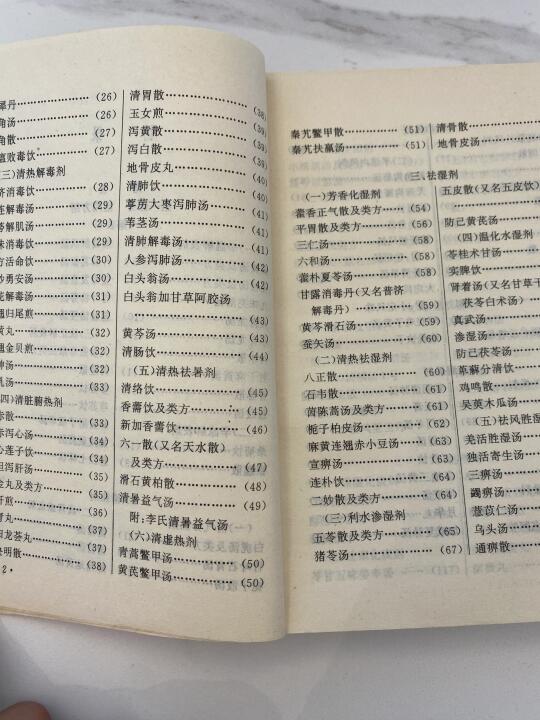 犀丹…………(26)
角汤…………(26)
角散…………(27)
瘟败毒饮…………(27)
(三)清热解毒剂
济消毒饮…………(28)
连解毒汤…………(29)
葛解肌汤…………(29)
味消毒饮…………(29)
方活命饮…………(30)
妙勇安汤…………(30)
花解毒汤…………(31)
翘归尾煎…………(31)
黄丸…………(32)
翘金贝煎…………(32)
神汤…………(32)
乳汤…………(33)
(四)清脏腑热剂
赤散…………(33)
赤泻心汤…………(34)
心莲子饮…………(34)
胆泻肝汤…………(35)
金丸及类方…………(35)
肝煎…………(36)
青丸…………(37)
归龙荟丸…………(37)
决明散…………(38)
2·
清胃散…………(38)
玉女煎…………(39)
泻黄散…………(39)
泻白散…………(39)
地骨皮丸…………(40)
清肺饮…………(40)
葶苈大枣泻肺汤…………(41)
苇茎汤…………(41)
清肺解毒汤…………(41)
人参泻肺汤…………(42)
白头翁汤…………(42)
白头翁加甘草阿胶汤
…………(43)
黄芩汤…………(43)
清肠饮…………(44)
(五)清热祛暑剂
清络饮…………(45)
香薷饮及类方…………(45)
新加香薷饮…………(46)
六一散(又名天水散)
及类方…………(47)
滑石黄柏散…………(48)
清暑益气汤…………(49)
附:李氏清暑益气汤
(六)清虚热剂
青蒿鳖甲汤…………(50)
黄芪鳖甲汤…………(50)
秦艽鳖甲散…………(51)
秦艽扶羸汤…………(51)
清骨散…………
地骨皮汤…………
三、祛湿剂
(一)芳香化湿剂
藿香正气散及类方…………(54)
平胃散及类方…………(56)
三仁汤…………(58)
六和汤…………(58)
藿朴夏苓汤…………(58)
甘露消毒丹(又名普济
解毒丹)…………(59)
黄芩滑石汤…………(59)
蚕矢汤…………(60)
(二)清热祛湿剂
八正散…………(60)
石韦散…………(61)
茵陈蒿汤及类方…………(61)
栀子柏皮汤…………(62)
麻黄连翘赤小豆汤…………(63)
宣痹汤…………(63)
连朴饮…………(64)
二妙散及类方…………(64)
(三)利水渗湿剂
五苓散及类方…………(65)
猪苓汤…………(67)
五皮散(又名五皮饮)
防己黄芪汤…………
(四)温化水湿剂
苓桂术甘汤…………
实脾饮…………
肾着汤(又名甘草干
茯苓白术汤)…………
真武汤…………
渗湿汤…………
防己茯苓汤…………
萆薢分清饮…………
鸡鸣散…………
吴萸木瓜汤…………
(五)祛风胜湿
羌活胜湿汤…………
独活寄生汤…………
三痹汤…………
蠲痹汤…………
薏苡仁汤…………
乌头汤…………
通痹散…………